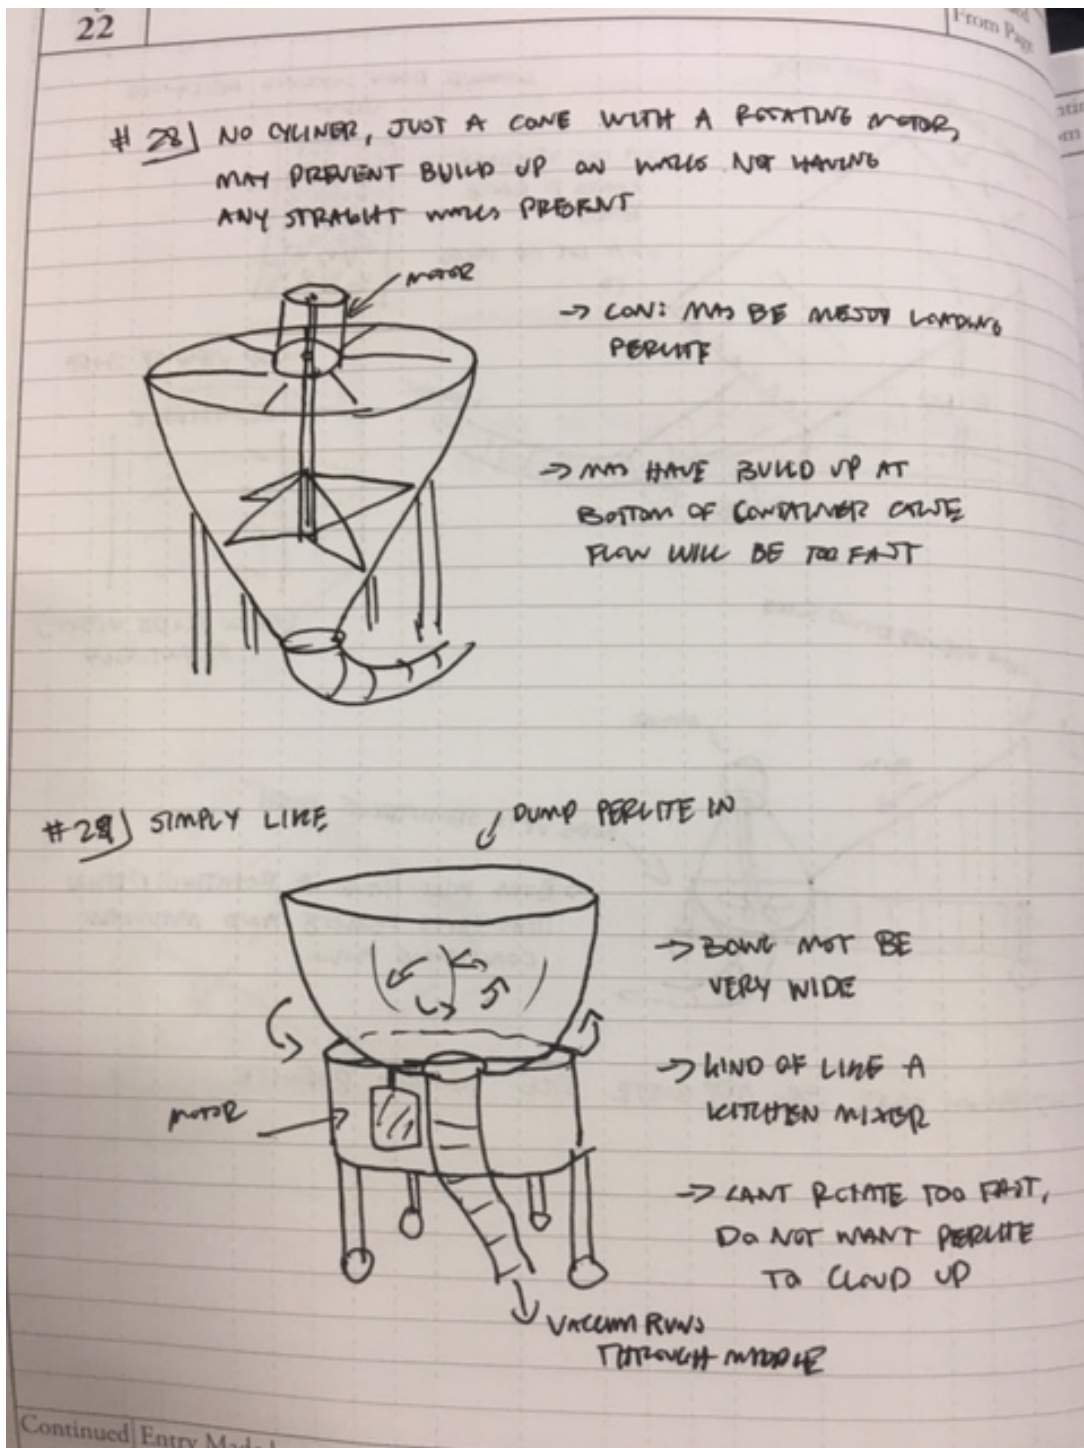 22
From Page
# 28) NO CYLINER, JUST A CONE WITH A ROTATING MOTOR,
MAY PREVENT BUILD UP ON WALLS NOT HAVING
ANY STRAIGHT WALLS PRESENT
MOTOR
→ CON: MAY BE MESSY LOADING
PERLITE
→ MAY HAVE BUILD UP AT
BOTTOM OF CONTAINER CAUSE
FLOW WILL BE TOO FAST
#29) SIMPLY LIKE
DUMP PERLITE IN
→ BOWL NOT BE
VERY WIDE
→ KIND OF LIKE A
KITCHEN MIXER
MOTOR
→ CANT ROTATE TOO FAST,
DO NOT WANT PERLITE
TO CLOUD UP
VACCUM RUNS
THROUGH MIDDLE
Continued Entry Made